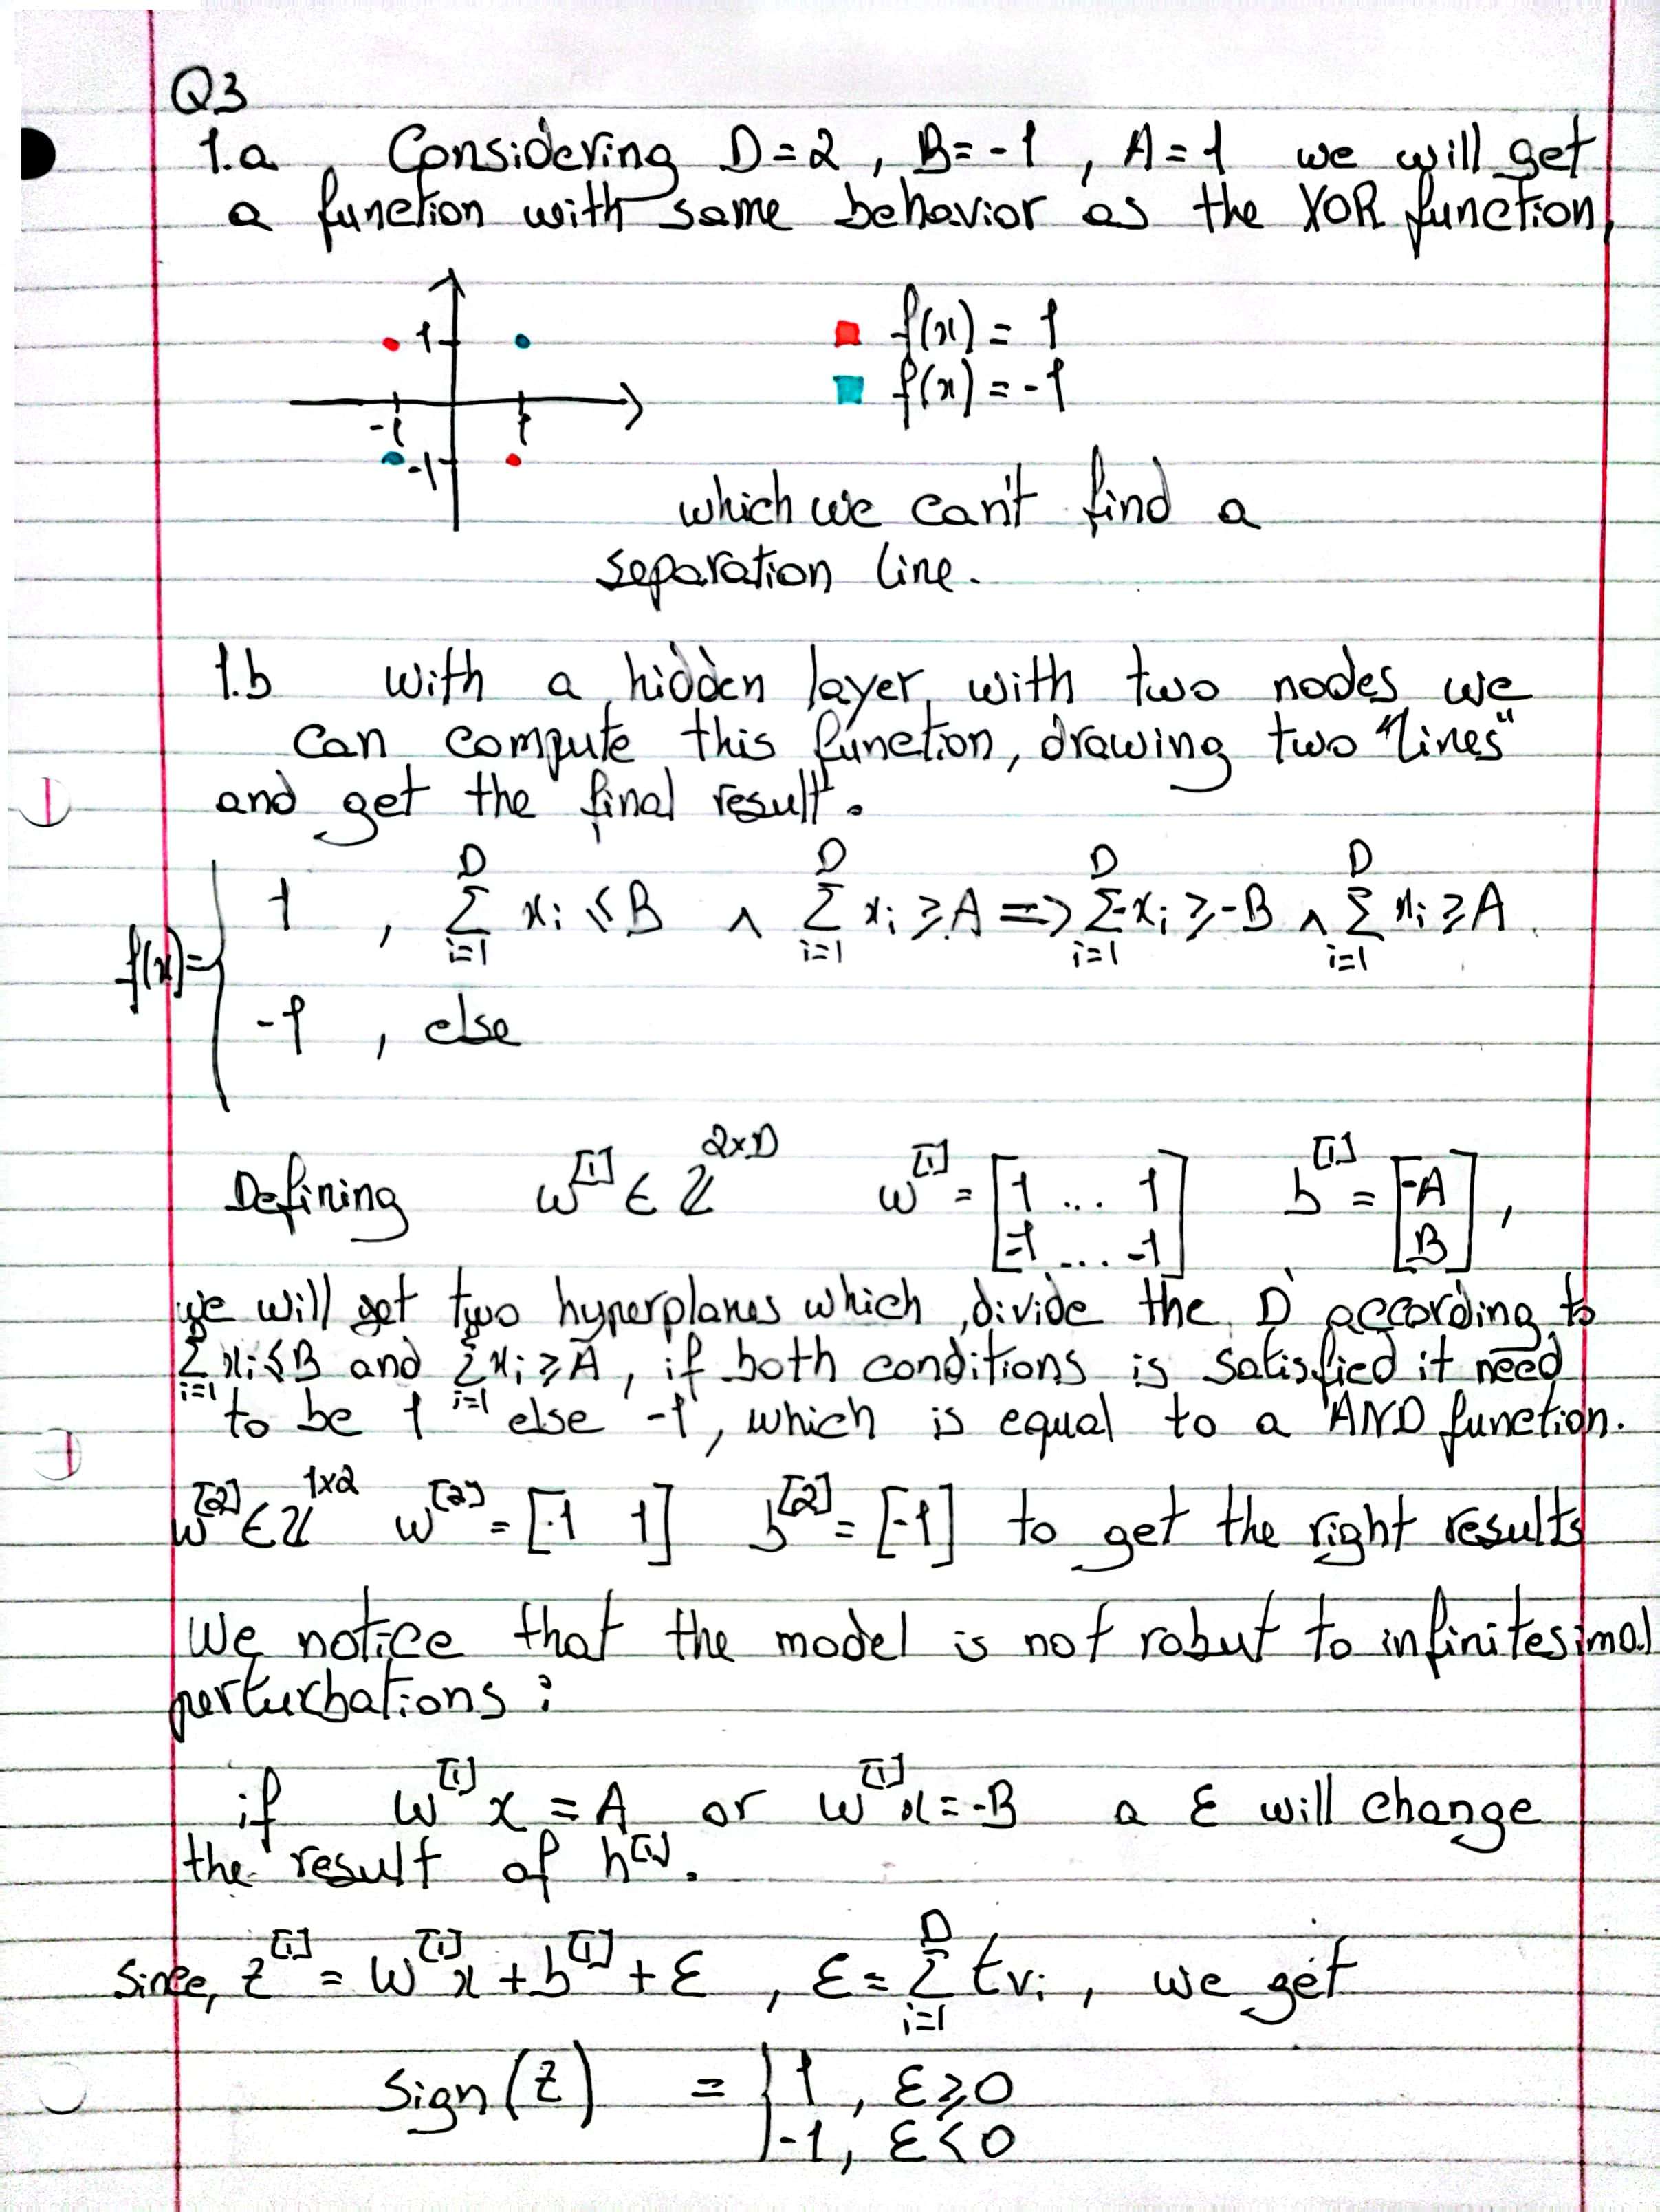 Q3
1.a Considering D=2 , B=-1 , A=1 we will get
a function with same behavior as the XOR function,
1 f(x) = 1
f(x) = -1
-1 1
-1
which we can't find a
separation line.
1.b with a hidden layer, with two nodes we
can compute this function, drawing two "lines"
and get the final result.
f(x)= { 1 , \sum_{i=1}^{D} x_i ≤ B ∧ \sum_{i=1}^{D} x_i ≥ A => \sum_{i=1}^{D} -x_i ≥ -B ∧ \sum_{i=1}^{D} x_i ≥ A
-1 , else
Defining w^{[1]} ∈ ℤ^{2xD} w^{[1]} = [1 ... 1; -1 ... -1] b^{[1]} = [-A; B] ,
we will get two hyperplanes which divide the D according to
\sum_{i=1} x_i ≤ B and \sum_{i=1} x_i ≥ A, if both conditions is satisfied it need
to be 1 else -1, which is equal to a AND function.
w^{[2]} ∈ ℤ^{1x2} w^{[2]} = [-1 1] b^{[2]} = [-1] to get the right results
We notice that the model is not robut to infinitesimal
perturbations :
if w^{[1]} x = A or w^{[1]} x = -B a ε will change
the result of h^{[1]}.
Since, z^{[1]} = W^{[1]} x + b^{[1]} + ε , ε = \sum_{i=1}^{D} t v_i , we get
Sign(z) = { 1 , ε ≥ 0
-1, ε < 0